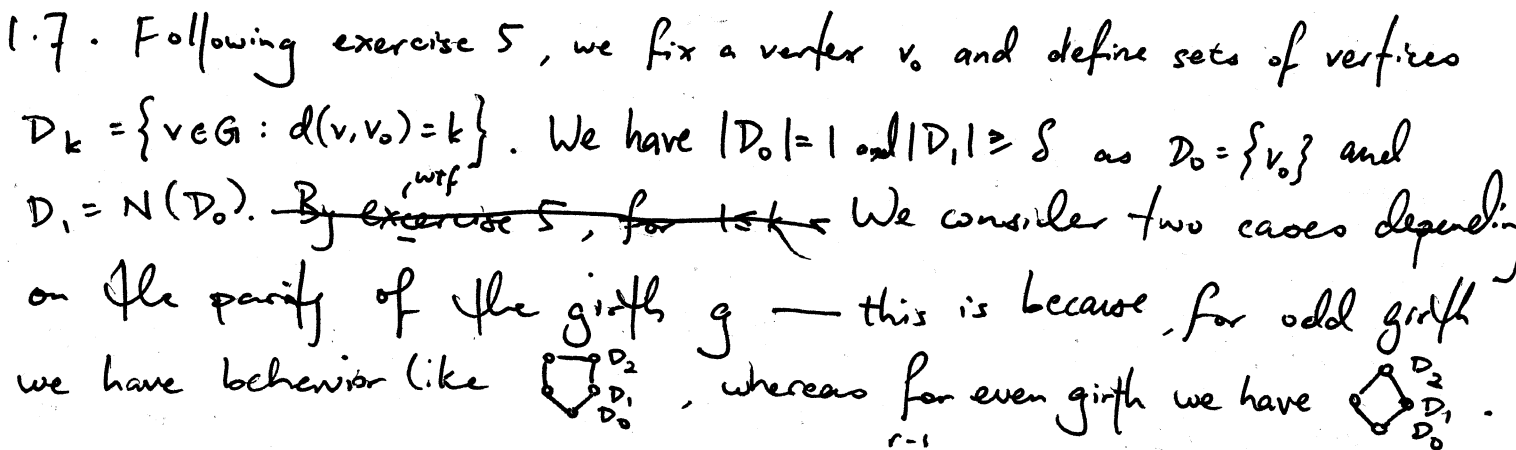 1.7. Following exercise 5, we fix a vertex v₀ and define sets of vertices
D_k = {v ∈ G : d(v, v₀) = k}. We have |D₀| = 1 and |D₁| ≥ δ as D₀ = {v₀} and
, wtf
D₁ = N(D₀). By excercise 5, for 1 ≤ k ≤ We consider two cases depending
on the parity of the girth g — this is because, for odd girth
we have behavior like D₂ D₁ D₀, whereas for even girth we have D₂ D₁ D₀.
r-1